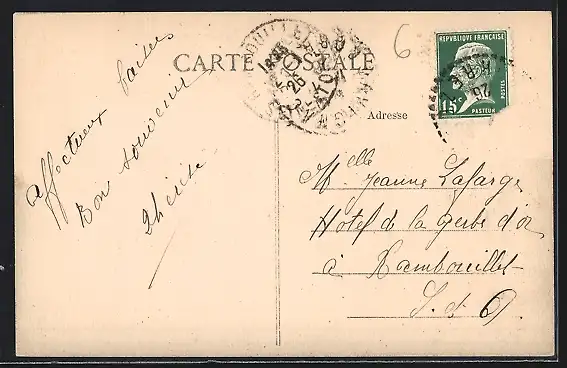 CARTE POSTALE
6
REPUBLIQUE FRANÇAISE
15c
POSTES
PASTEUR
Adresse
affectueux baisers
Bon souvenir
Thérèse
Melle Jeanne Lafarge
Hotel de la gerbe d'or
à Rambouillet
S. et O